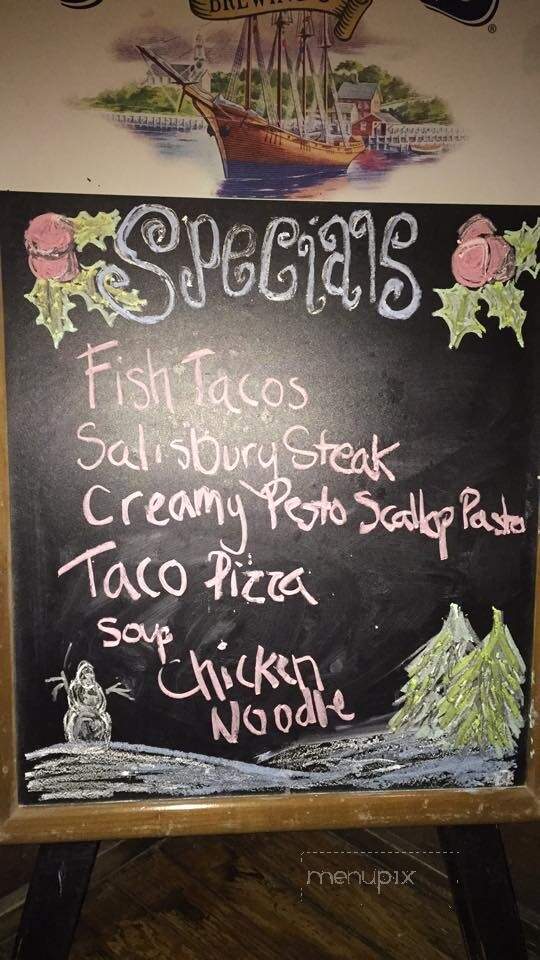 BREWING
®
Specials
Fish Tacos
Salisbury Steak
Creamy Pesto Scallop Pasta
Taco Pizza
Soup
Chicken
Noodle
menupix